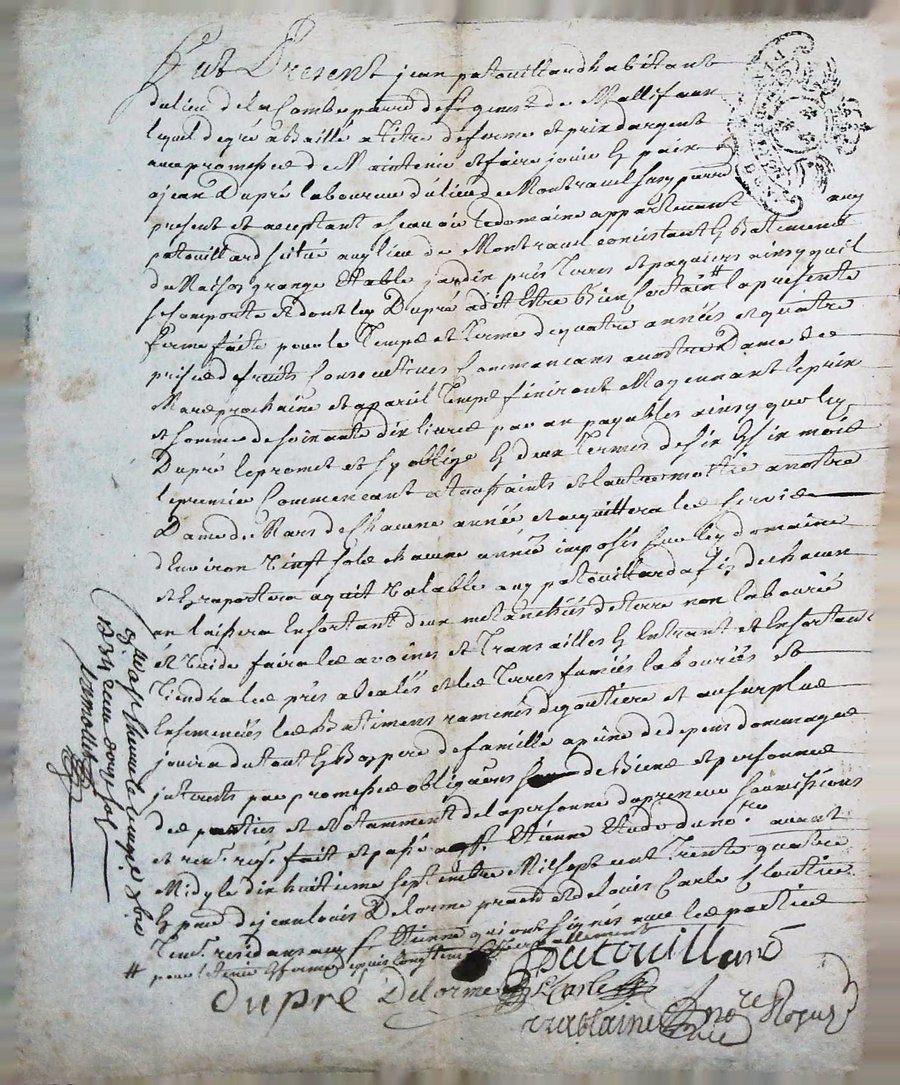 Fut Present jean patouillard habitant
du lieu de la Combe paroisse de St genest de Mallifaux
lequel de gré a Baillé a titre de ferme et prix dargent
avec promesse de Maintenir et faire jouir En paix
a jean Dupré laboureur du lieu de Montravel susd parroisse
present et acceptant a scavoir le domaine appartenant aud
patouillard scitué aud lieu de Montravel consistant En Batiments
de Maison grange Etable jardin prés Terres et paquiers ainsy quil
se comporte et dont led Dupré a dit Etre Bien Certain # la presente
ferme faite pour le Temps et Terme de quatre années et quatre
prises de fruits Consecutives Commencans a nostre Dame de
Mars prochaine et a pareil Temps finiront Moyennant le prix
et somme de soixante dix livres par an payables ainsy que led
Dupré le promet et s'oblige En deux Termes de six En six mois
le premier Commencant a toussaints et lautre moitié a nostre
Dame de Mars de Chacune année et acquittera les servis
d'Environ Vingt sols chacune année imposés sur led domaine
et En raportera aquit Valable aud patouillard a fin de chacun
an laissera En sortant deux metanchées de terre non labourée
et Vuide faira les avoines et Transailles En Entrant et En sortant
Tiendra les prés a et les Terres fumées labourées et
Ensemencées les Batiments ramenés de goutiere et au surplus
jouira du tout En Bon pere de famille a peine de depens dommages
interests par promesses obligaõns de Biens et personnes
des parties et Notamment de la personne du preneur soumissions
et renõns fait et passé a St Etienne Etude du nore avant
Midy le dix huitieme septembre Mil sept cent Trente quatre
En pnce de jean louis Delorme praen et de louis Carle Cloutier
Tem. residans aud St Etienne qui ont signés avec les parties
# pour le tenir En ferme depuis longtems
patouillard
Dupré Delorme L Carle
nore Royal
1734 receu douze sols